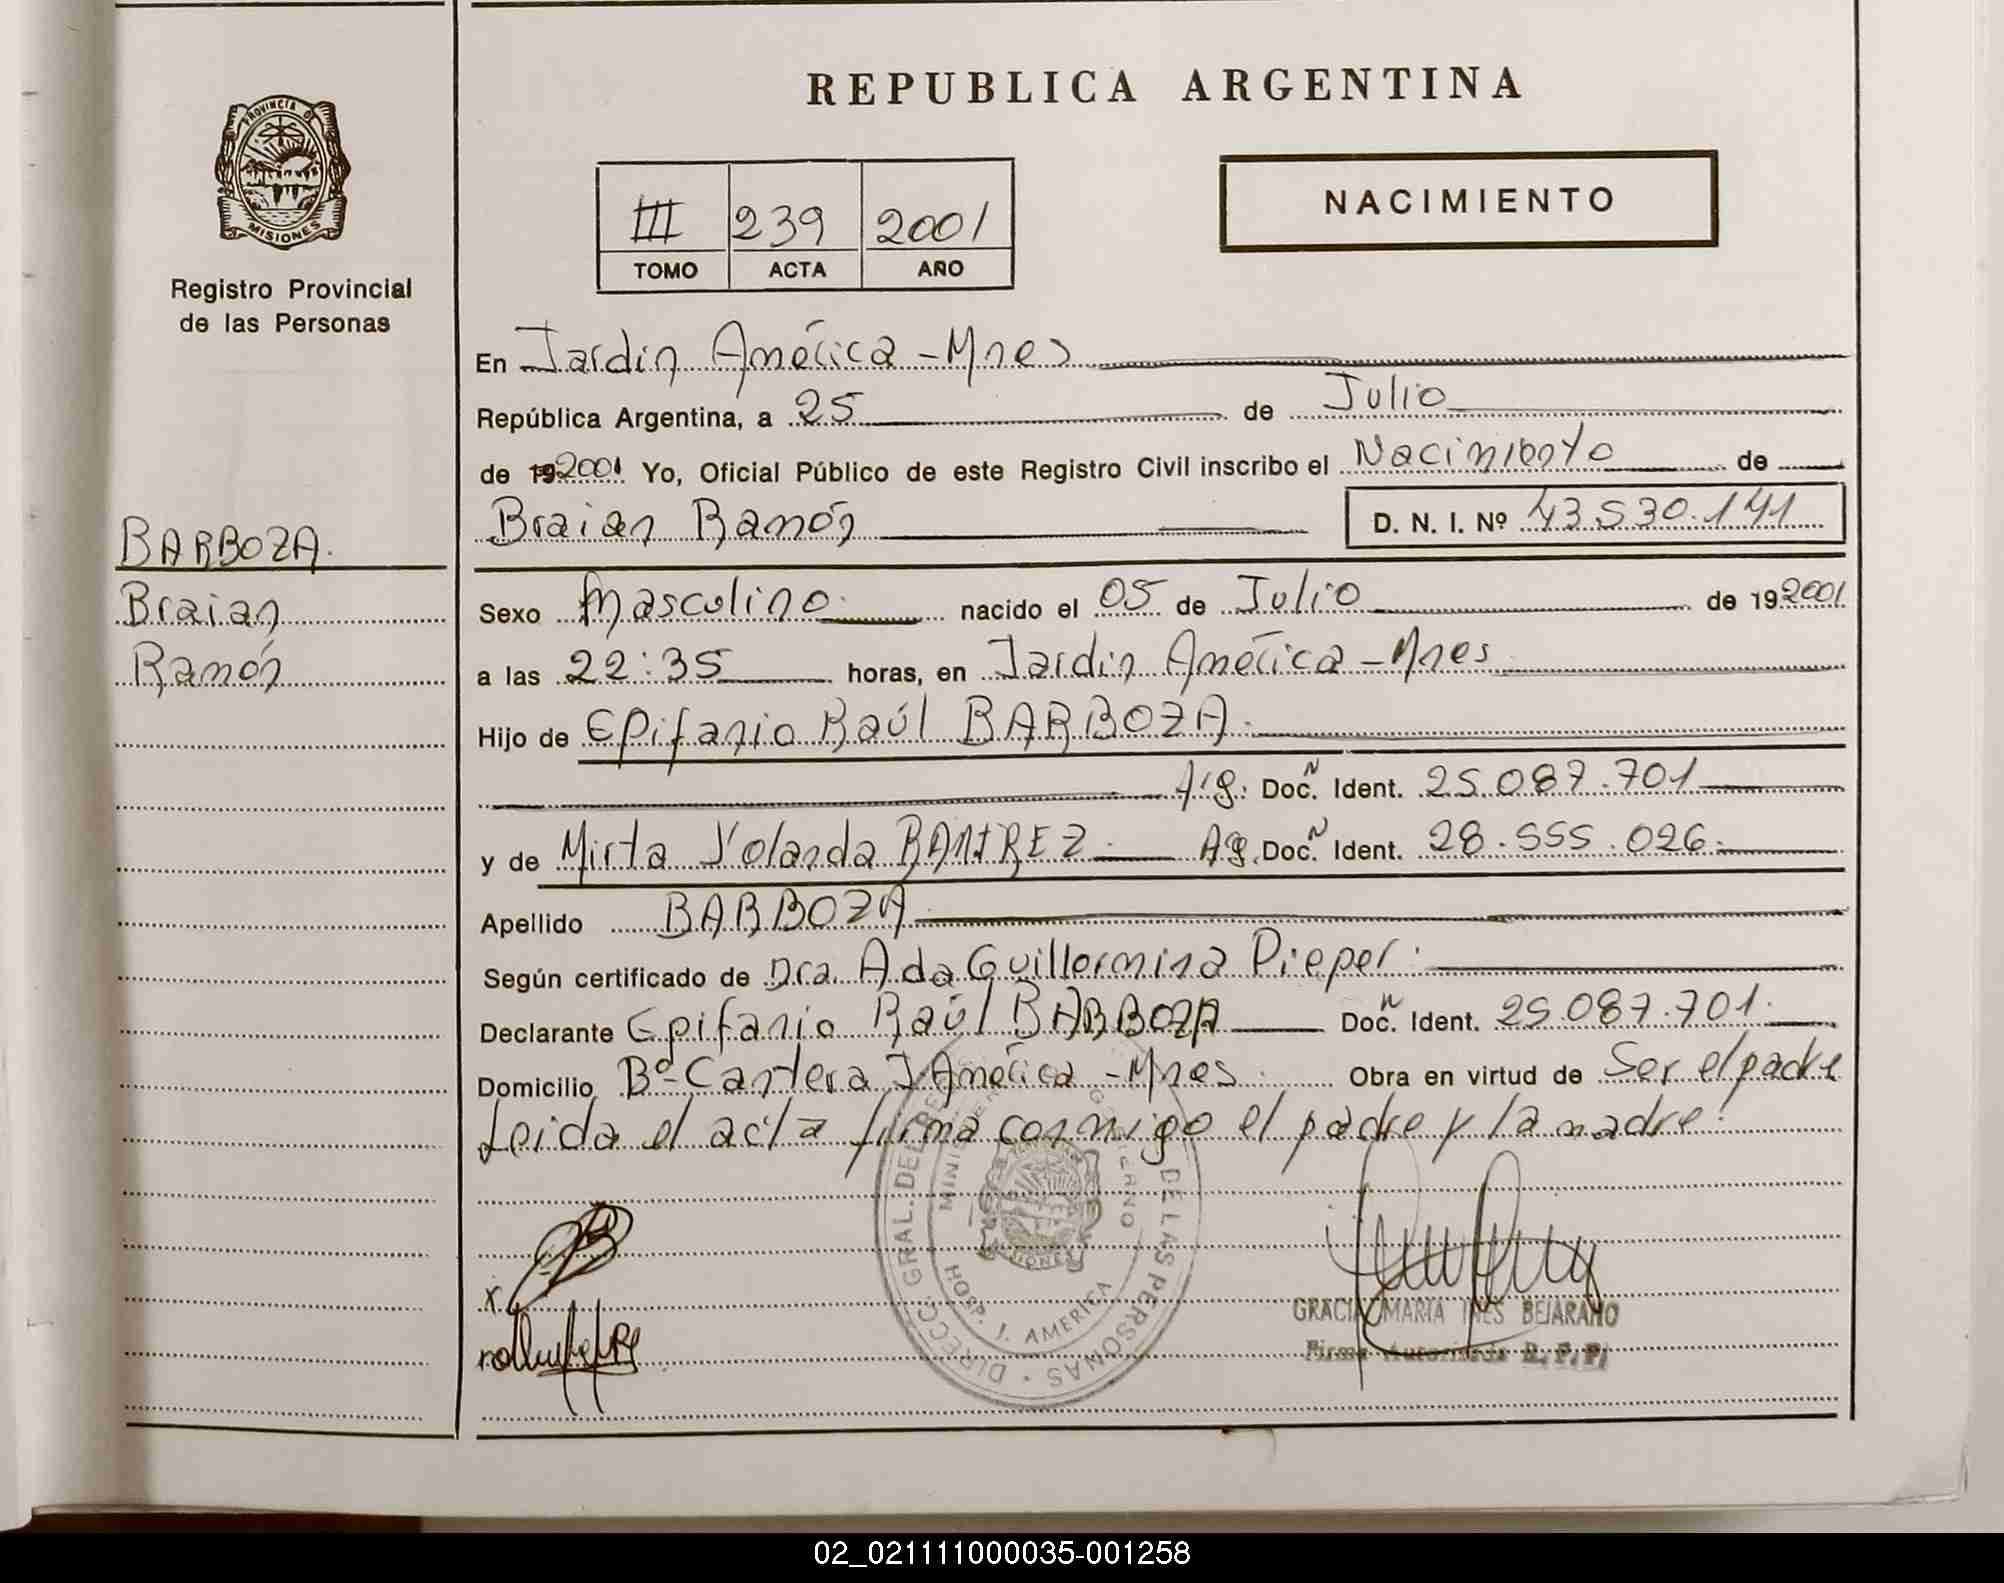 REPUBLICA ARGENTINA
PROVINCIA DE
MISIONES
Registro Provincial
de las Personas
NACIMIENTO
III 239 2001
TOMO ACTA AÑO
En Jardin América - Mnes
República Argentina, a 25 de Julio
de 192001 Yo, Oficial Público de este Registro Civil inscribo el Nacimiento de
Braian Ramón D. N. I. Nº 43.530.141
BARBOZA.
Braian
Ramón
Sexo Masculino. nacido el 05 de Julio de 192001
a las 22:35 horas, en Jardin América - Mnes
Hijo de Epifanio Raúl BARBOZA.
Arg. Doc. N Ident. 25.087.701
y de Mirta Yolanda RAMIREZ. Ag. Doc. N Ident. 28.555.026.
Apellido BARBOZA.
Según certificado de Dra. Ada Guillermina Pieper.
Declarante Epifanio Raúl BARBOZA Doc. N Ident. 25.087.701.
Domicilio Bº-Cantera J. América - Mnes. Obra en virtud de Ser el padre
Leida el acta firma conmigo el padre y la madre.
DIRECC. GRAL. DEL REG. DE LAS PERSONAS
HOSP. J. AMERICA
x
GRACIA MARIA INES BEJARANO
Firma Autorizada R. P. P.
02_021111000035-001258